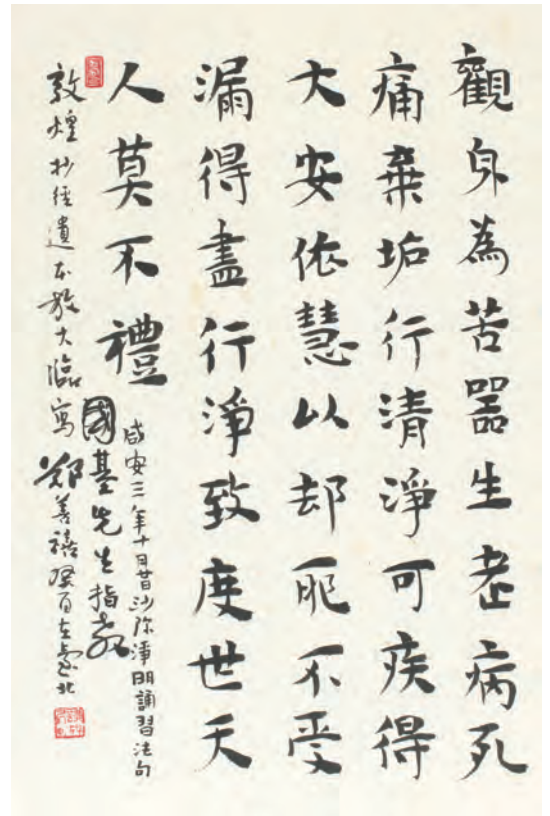 觀身為苦器生老病死
痛棄垢行清淨可疾得
大安依慧以却耶不受
漏得盡行淨致度世天
人莫不禮
咸安三年十月廿日沙弥淨明誦習法句
國基先生指教
敦煌抄經遺本放大臨寫鄭善禧癸酉在臺北